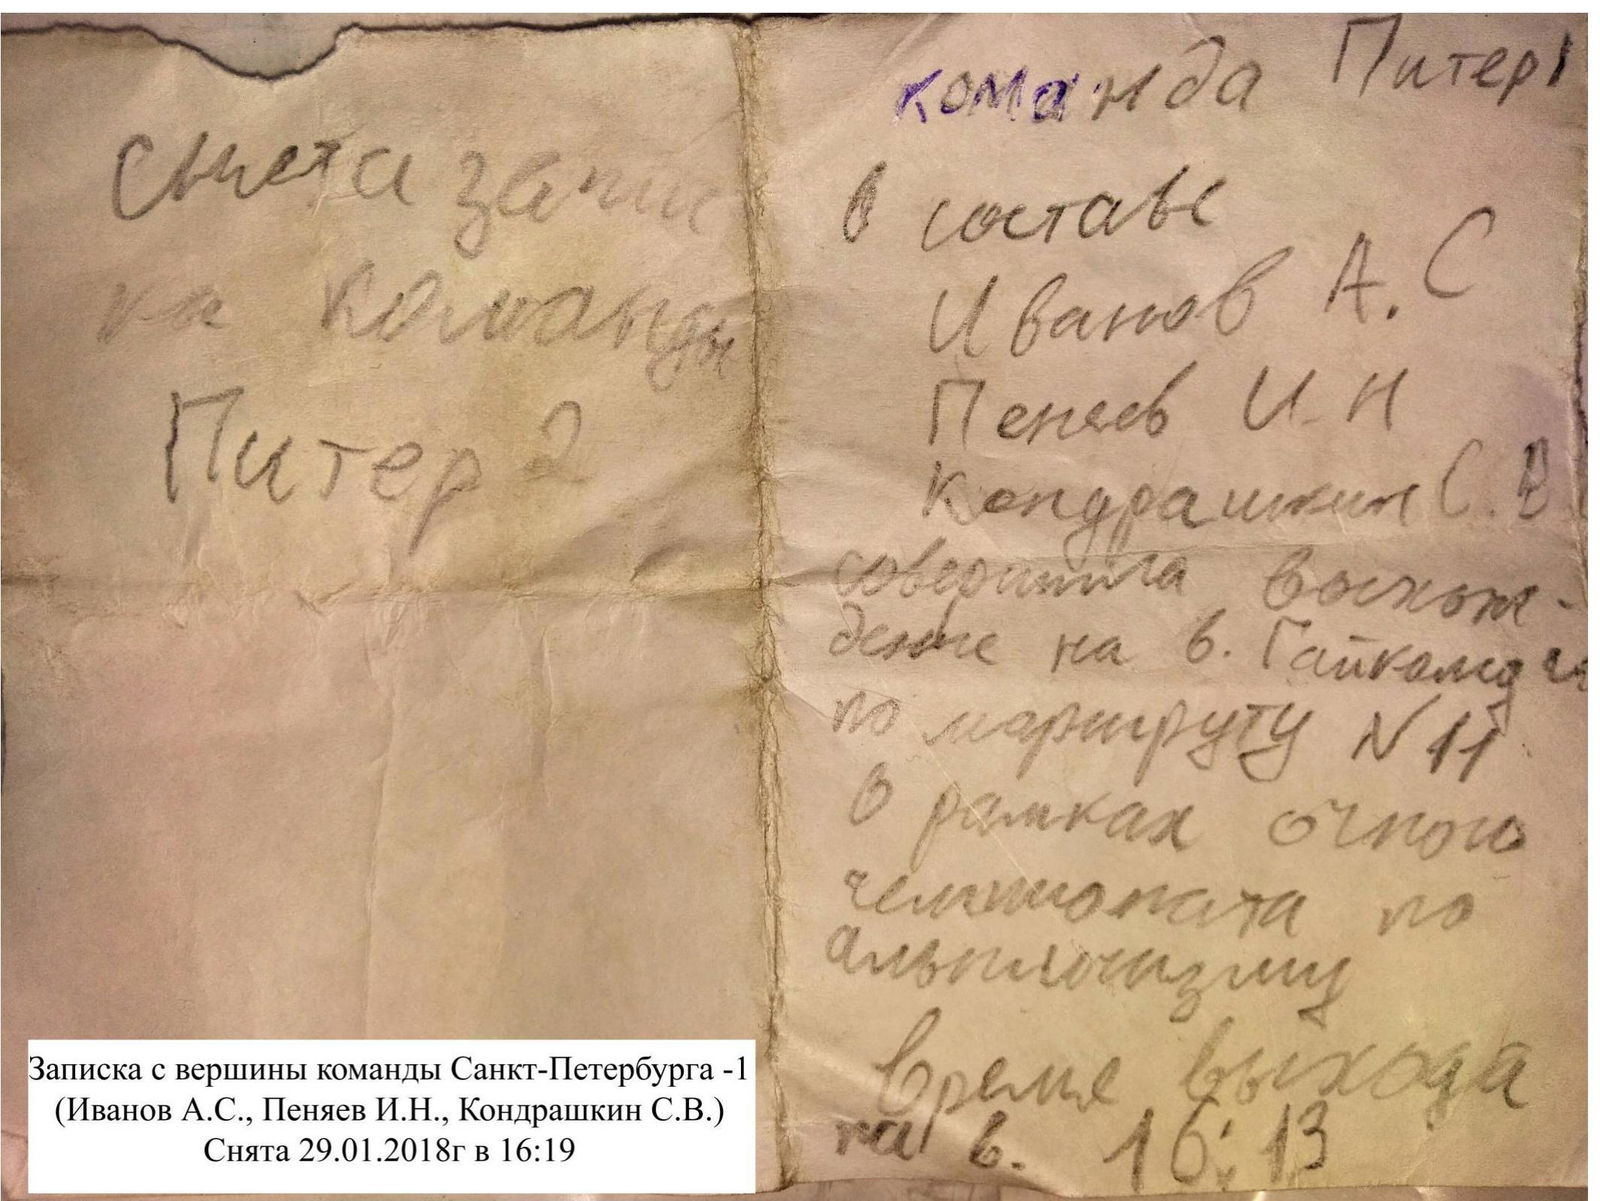 снята запис
ка команды
Питер 2
команда Питер 1
в составе
Иванов А. С
Пеняев И. Н
Кондрашкин С. В
совершила восхож-
дение на в. Гайкомд
по маршруту N 11
в рамках очного
чемпионата по
альпинизму
Время выхода
на в. 16:13
Записка с вершины команды Санкт-Петербурга -1
(Иванов А.С., Пеняев И.Н., Кондрашкин С.В.)
Снята 29.01.2018г в 16:19